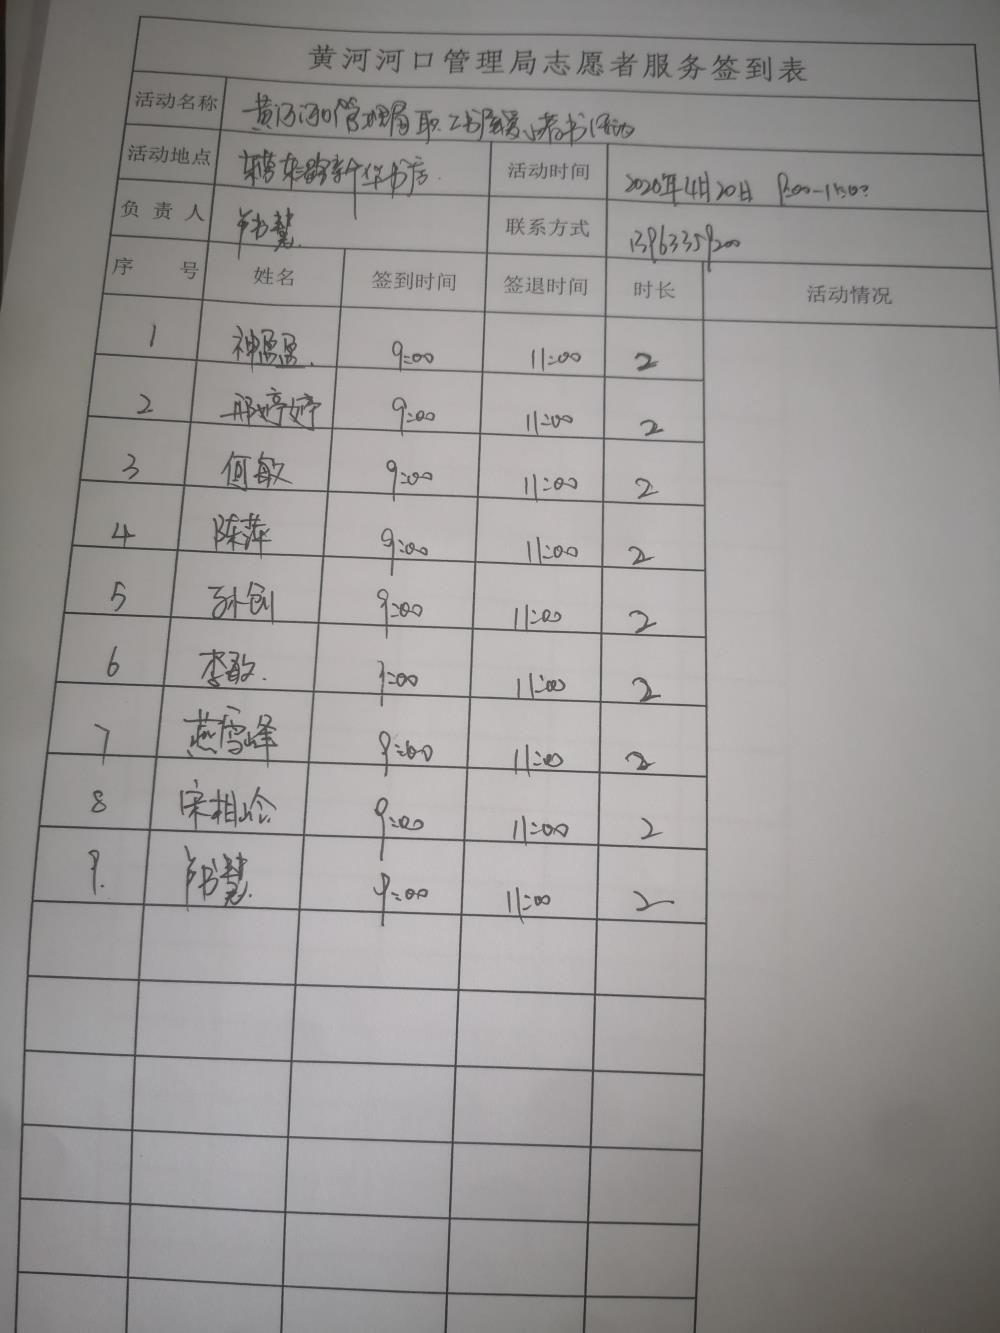 黄河河口管理局志愿者服务签到表
活动名称 黄河河口管理局职工书屋 书活动
活动地点 新华书店 活动时间 2020年4月20日 9:00-11:00
负责人 书慧 联系方式
序号 姓名 签到时间 签退时间 时长 活动情况
1 神盈盈 9:00 11:00 2
2 邢婷婷 9:00 11:00 2
3 何敏 9:00 11:00 2
4 陈萍 9:00 11:00 2
5 孙创 9:00 11:00 2
6 李敏 9:00 11:00 2
7 燕雪峰 9:00 11:00 2
8 宋相岭 9:00 11:00 2
9 书慧 9:00 11:00 2